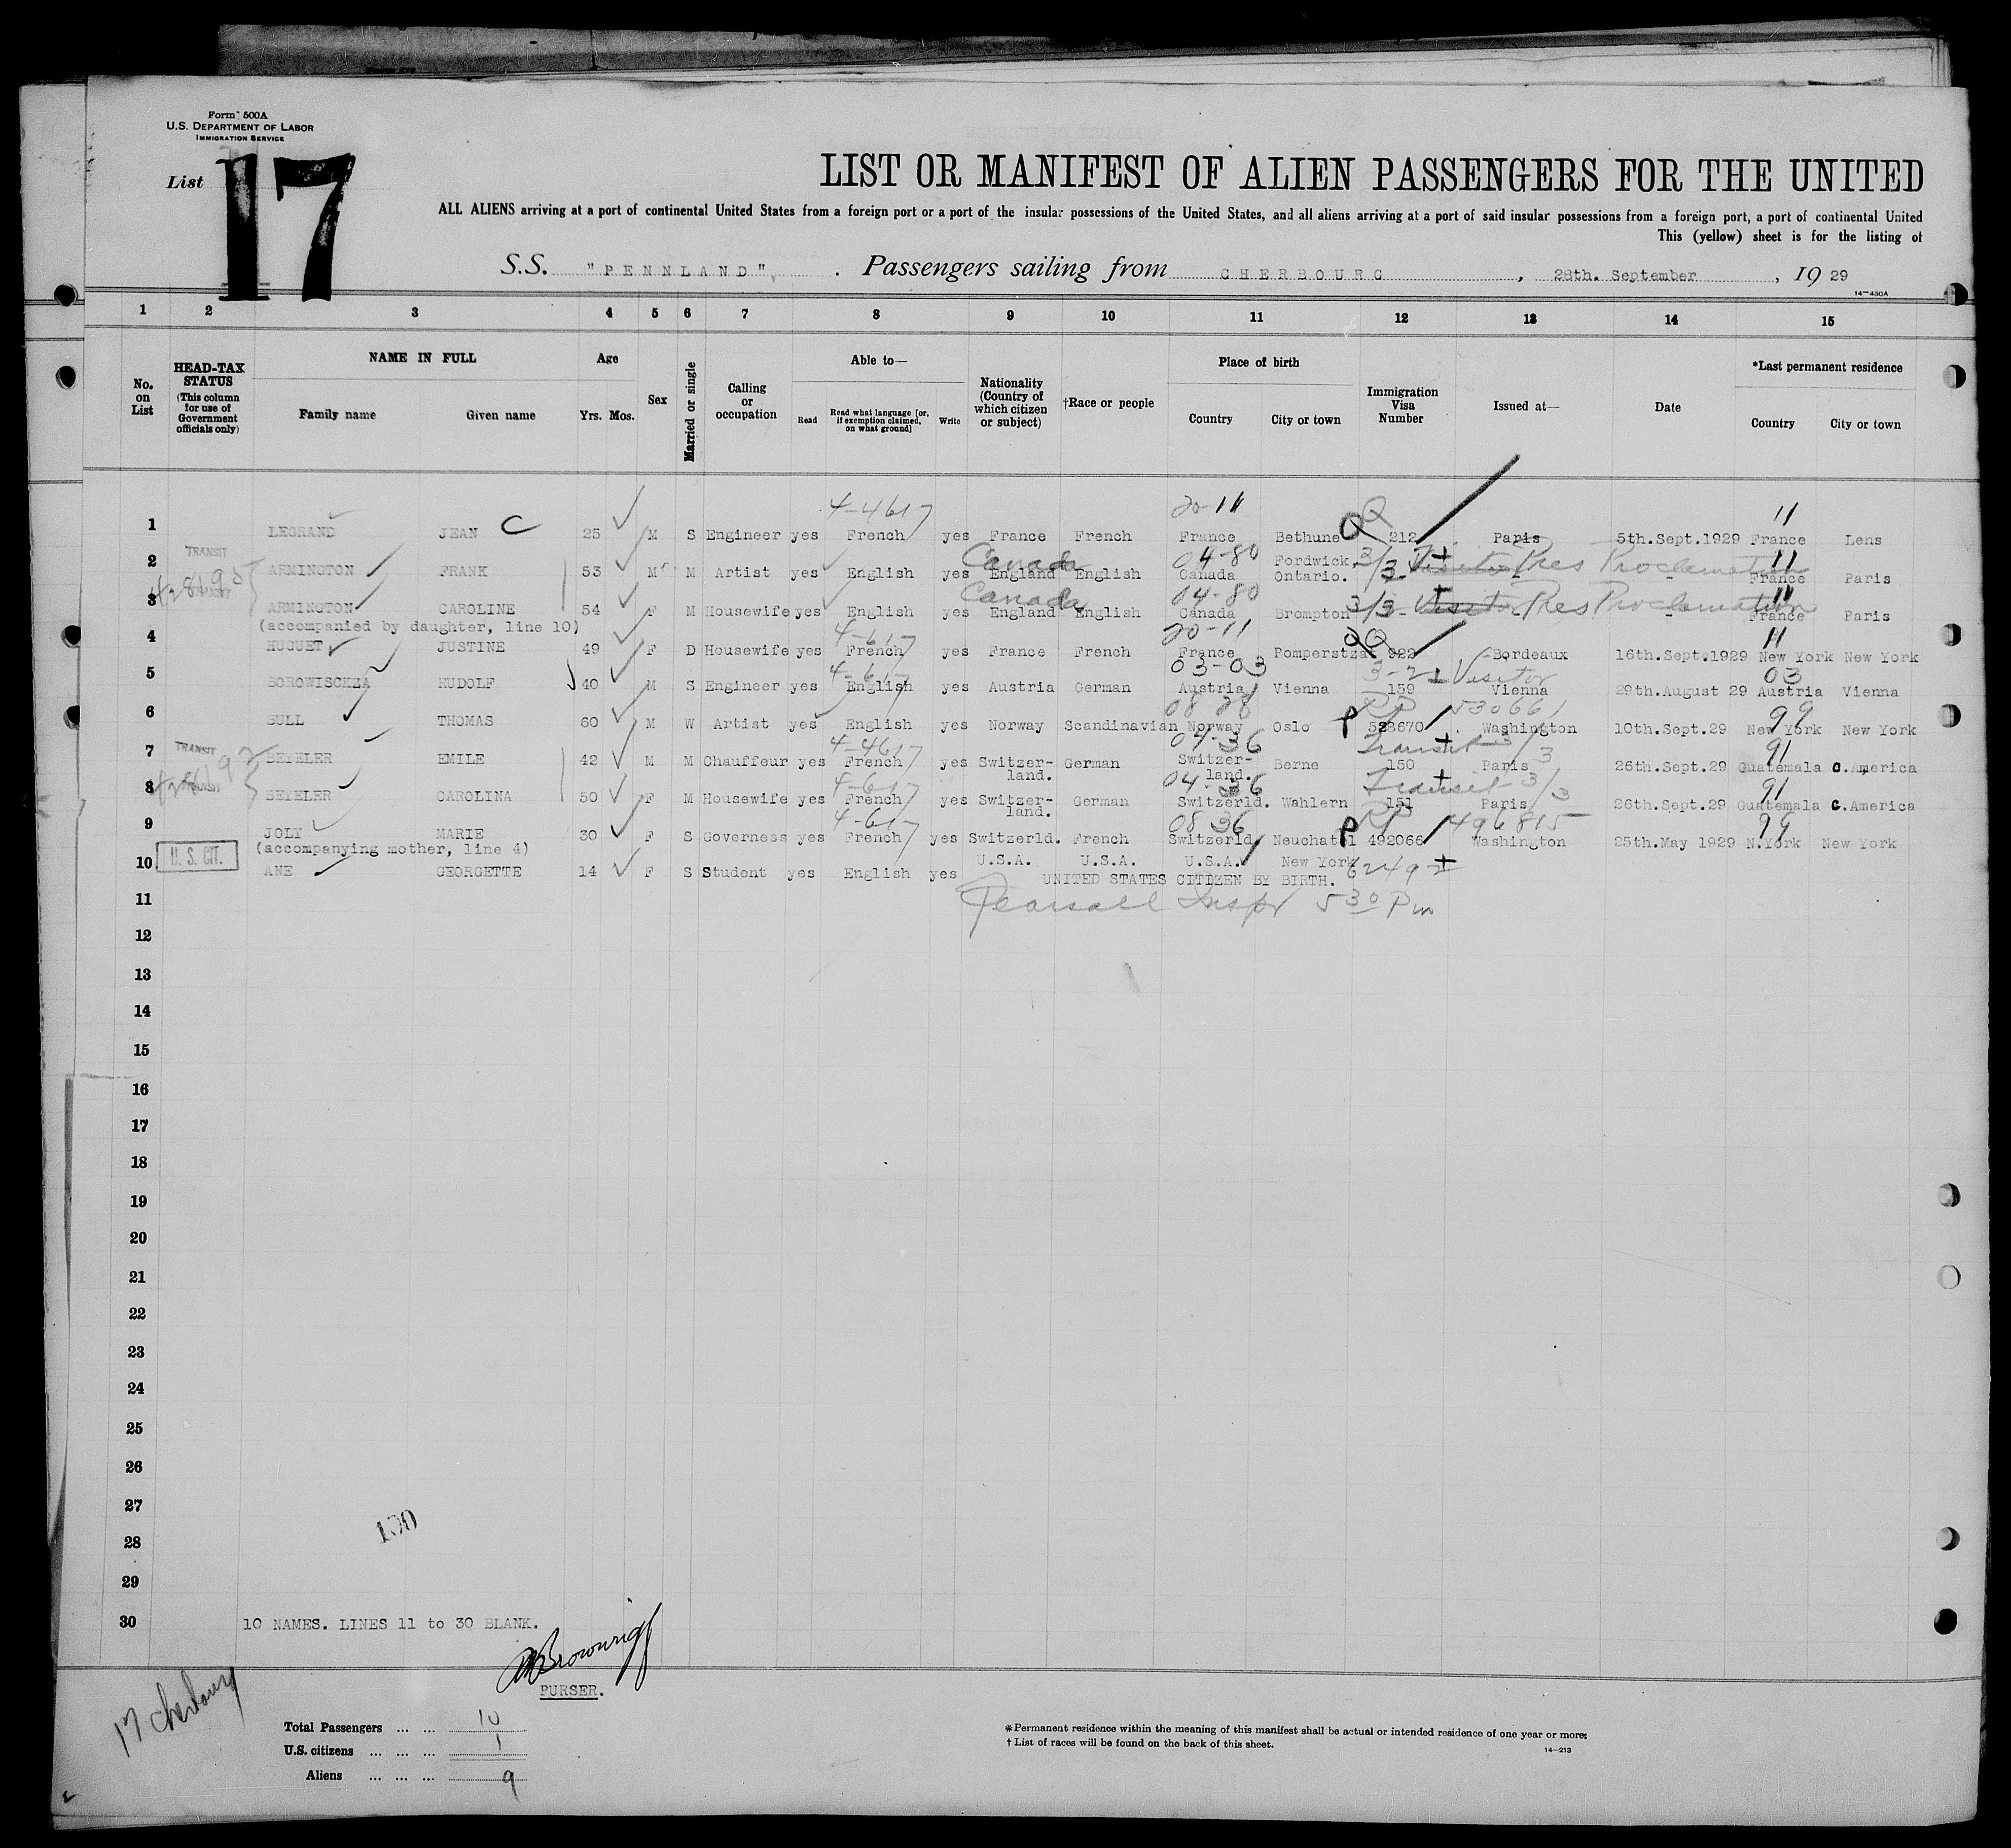 Form 500A
U.S. DEPARTMENT OF LABOR
IMMIGRATION SERVICE
List 17
LIST OR MANIFEST OF ALIEN PASSENGERS FOR THE UNITED
ALL ALIENS arriving at a port of continental United States from a foreign port or a port of the insular possessions of the United States, and all aliens arriving at a port of said insular possessions from a foreign port, a port of continental United
This (yellow) sheet is for the listing of
S.S. "PENNLAND", . Passengers sailing from CHERBOURG , 28th. September , 19 29
14-430A
1 2 3 4 5 6 7 8 9 10 11 12 13 14 15
No. on List
HEAD-TAX STATUS (This column for use of Government officials only)
NAME IN FULL
Family name Given name
Age
Yrs. Mos.
Sex
Married or single
Calling or occupation
Able to—
Read Read what language [or, if exemption claimed, on what ground] Write
Nationality (Country of which citizen or subject)
†Race or people
Place of birth
Country City or town
Immigration Visa Number
Issued at—
Date
*Last permanent residence
Country City or town
4-4617 20-11 Q 11
1 LEGRAND JEAN C 25 M S Engineer yes French yes France French France Bethune 212 Paris 5th.Sept.1929 France Lens
TRANSIT Canada 04-80 Fordwick 3/3 Visitor Pres Proclamation 11
2 ARMINGTON FRANK 53 M M Artist yes English yes England English Canada Ontario. - - France Paris
TRANSIT Canada 04-80 3/3 Visitor Pres Proclamation 11
3 ARMINGTON CAROLINE 54 F M Housewife yes English yes England English Canada Brompton - - France Paris
(accompanied by daughter, line 10)
4-617 20-11 Q 11
4 HUGUET JUSTINE 49 F D Housewife yes French yes France French France Pomperstza 922 Bordeaux 16th.Sept.1929 New York New York
4-617 03-03 3-2 Visitor 03
5 BOROWISCKZA RUDOLF 40 M S Engineer yes English yes Austria German Austria Vienna 159 Vienna 29th.August 29 Austria Vienna
08 28 PP 530661 99
6 BULL THOMAS 60 M W Artist yes English yes Norway Scandinavian Norway Oslo P 528670 Washington 10th.Sept.29 New York New York
TRANSIT 4-4617 04-36 Transit 3/3 91
7 BEYELER EMILE 42 M M Chauffeur yes French yes Switzer-land. German Switzer-land. Berne 150 Paris 26th.Sept.29 Guatemala C.America
TRANSIT 4-617 04-36 Transit 3/3 91
8 BEYELER CAROLINA 50 F M Housewife yes French yes Switzer-land. German Switzerld. Wahlern 151 Paris 26th.Sept.29 Guatemala C.America
4-617 08 36 PP 496815 99
9 JOLY MARIE 30 F S Governess yes French yes Switzerld. French Switzerld. Neuchatel P 492066 Washington 25th.May 1929 N.York New York
(accompanying mother, line 4)
10 U. S. CIT. ANE GEORGETTE 14 F S Student yes English yes U.S.A. U.S.A. U.S.A. New York 6249
UNITED STATES CITIZEN BY BIRTH.
11 Pearsall Inspr 5 30 Pm
12
13
14
15
16
17
18
19
20
21
22
23
24
25
26
27
130
28
29
30 10 NAMES. LINES 11 to 30 BLANK.
Brownrigg
PURSER.
17 Cherbourg
Total Passengers ... ... 10
U.S. citizens ... ... ... 1
Aliens ... ... ... 9
*Permanent residence within the meaning of this manifest shall be actual or intended residence of one year or more.
†List of races will be found on the back of this sheet.
14-213